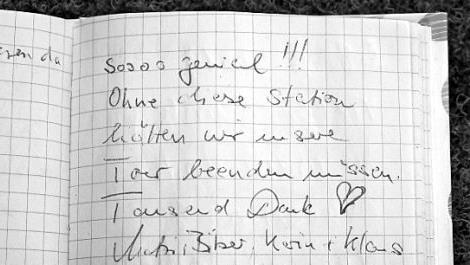 sen da
Soooo genial !!!
Ohne diese Station
hätten wir unsere
Tour beenden müssen.
Tausend Dank ♡
Klaus